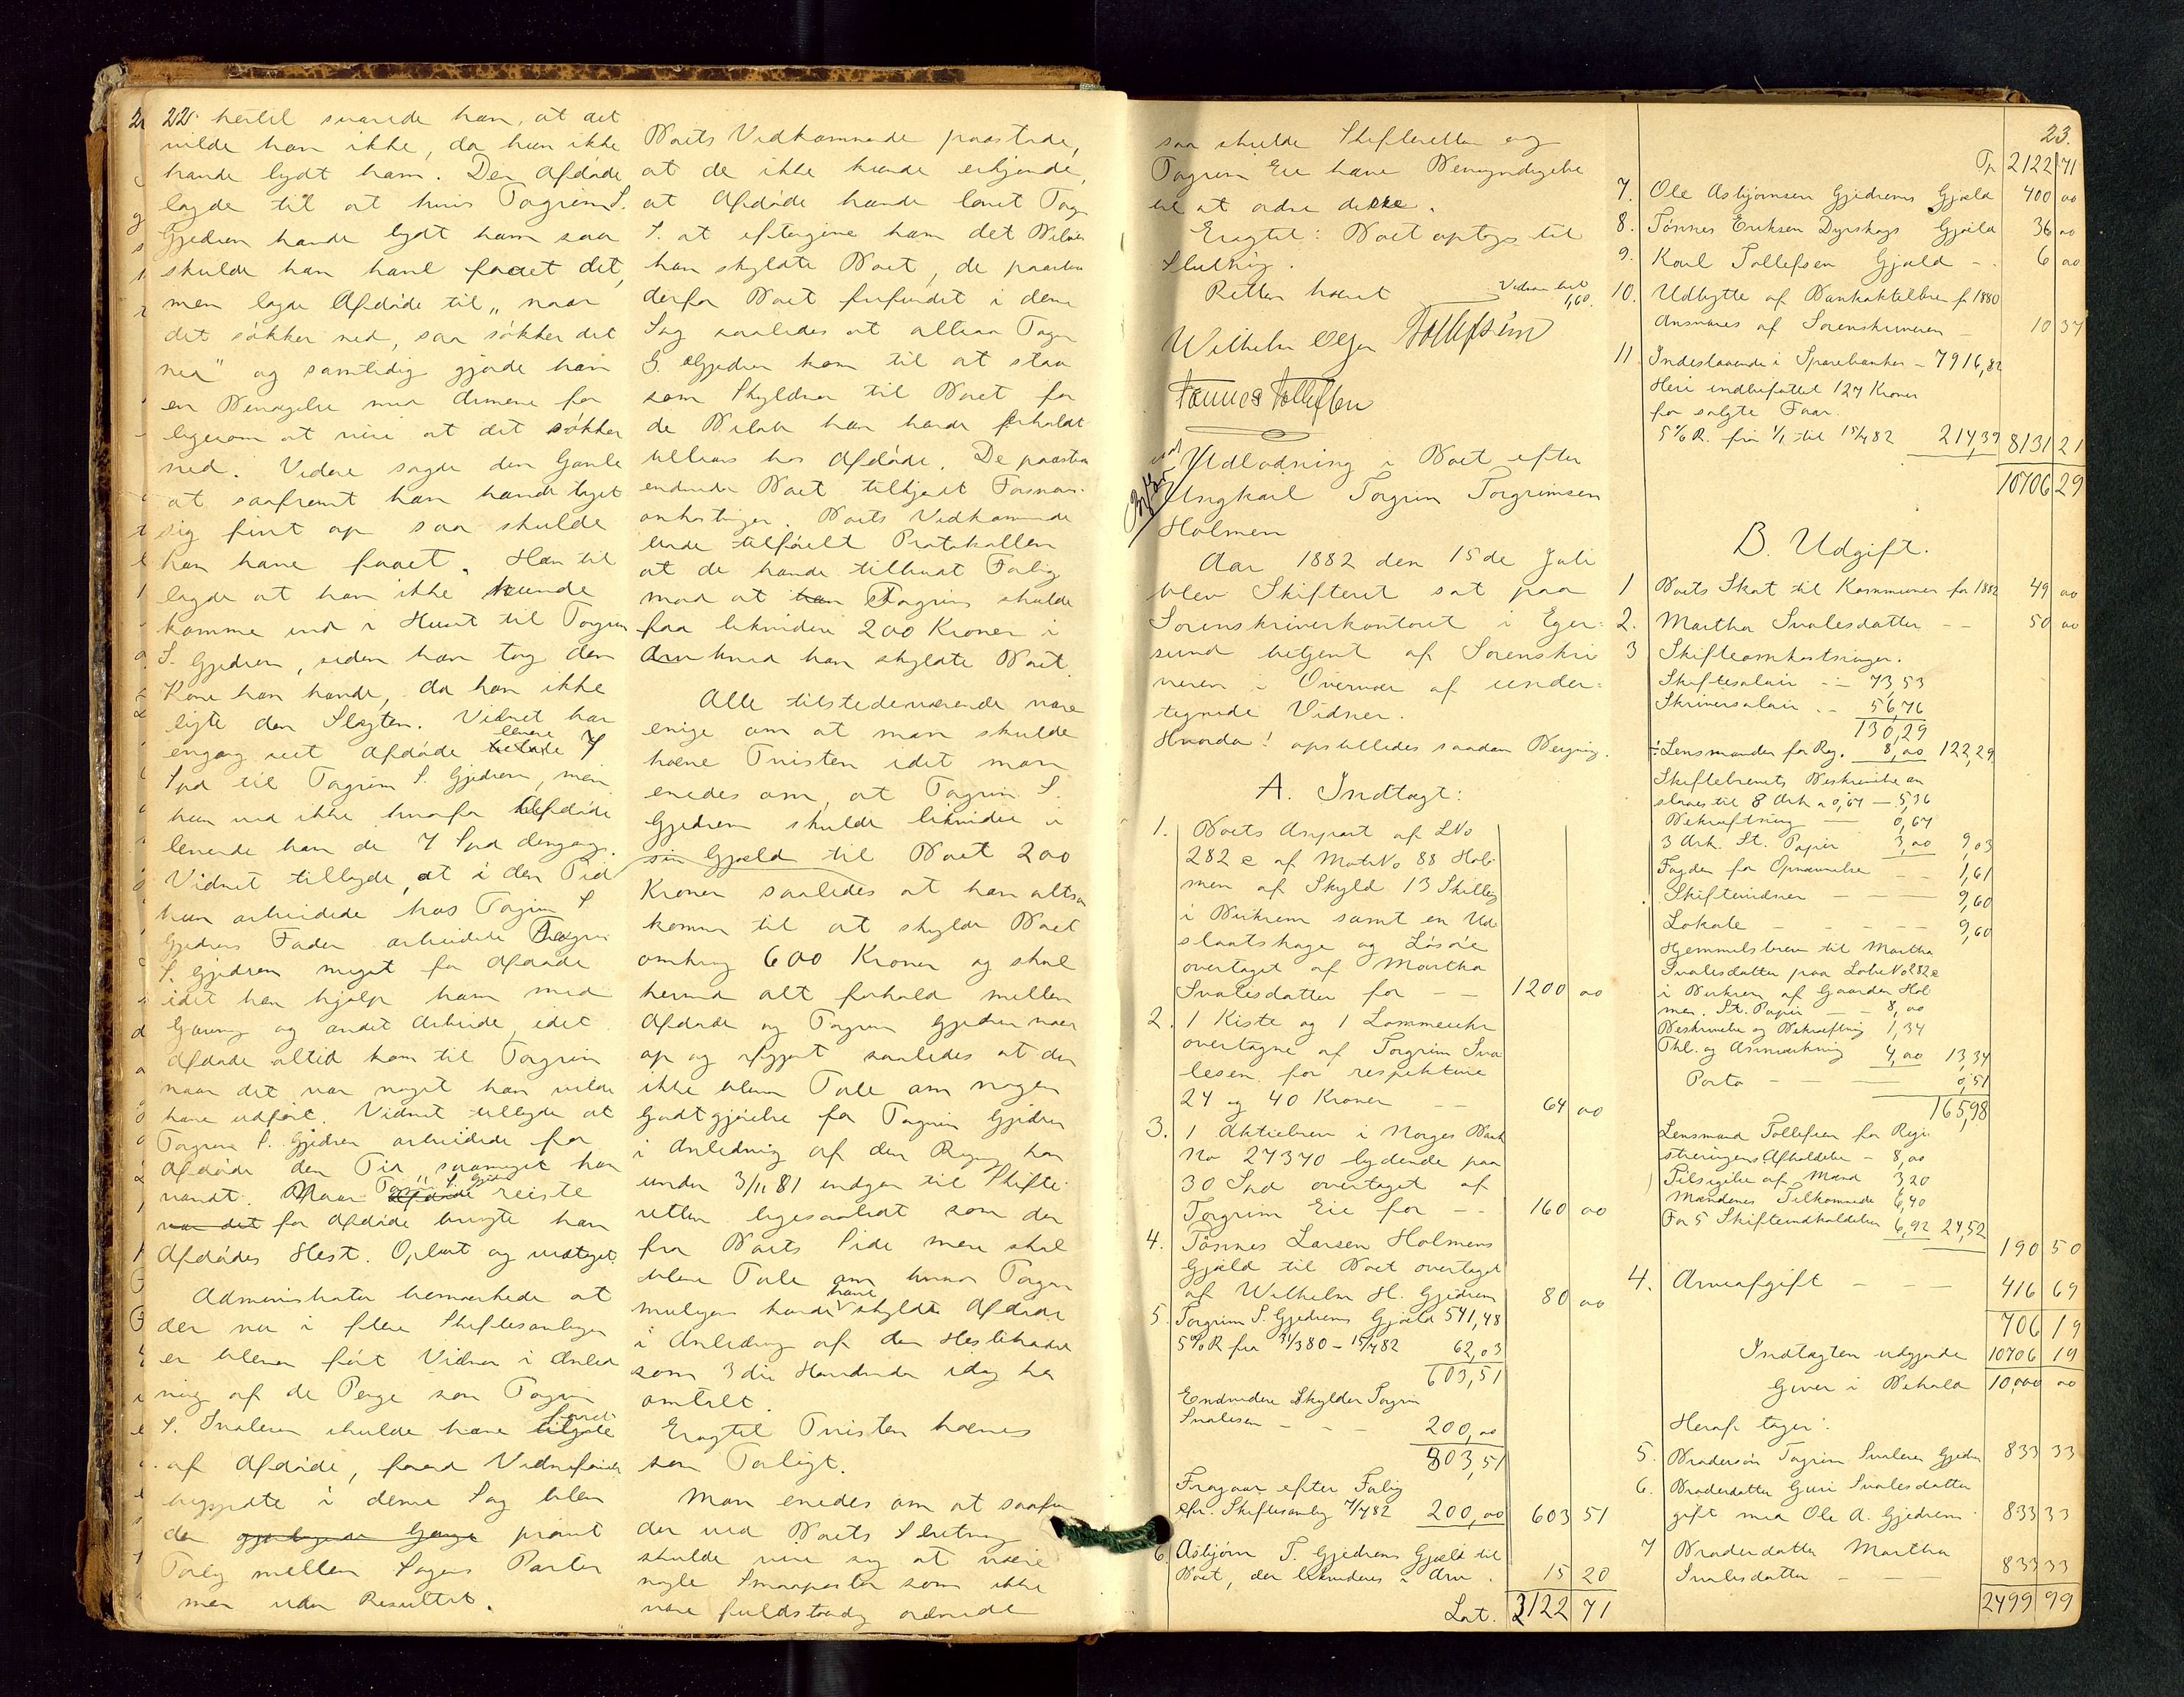 22. hertil svarede han, at det
vilde han ikke, da han ikke
havde lydt ham. Den Afdøde
lagde til at hvis Torgrim S.
Gjedrem havde lydt ham saa
skulde han have faaet det,
men lagde Afdøde til „naar
det søkker ned, saa søkker det
ned" og samtidig gjorde han
en Bevægelse med Armene for
ligesom at vise at det søkker
ned. Videre sagde den Gamle
at saafremt han havde taget
sig fint op saa skulde
han have faaet. Han til
lagde at han ikke kunde
komme ind i Huset til Torgrim
S. Gjedrem, siden han tog den
Kone han havde, da han ikke
ligte den Slægten. Vidnet har
engang seet Afdøde levere 7
Spd til Torgrim S. Gjedrem, men
han ved ikke hvorfor Afdøde
leverede ham de 7 Spd dengang.
Vidnet tillagde, at i den Tid
han arbeidede hos Torgrim S.
Gjedrems Fader arbeidede Torgrim
S. Gjedrem meget for Afdøde
idet han hjalp ham med
Ganing og andet Arbeide, idet
Afdøde altid kom til Torgrim
naar det var noget han vilde
have udført. Vidnet tillagde at
Torgrim S. Gjedrem arbeidede for
Afdøde den Tid, saameget han
vandt. Naar Torgrim S. Gjedrem reiste
var det for Afdøde brugte han
Afdødes Hest. Oplæst og vedtaget.
Administrator bemærkede at
der nu i flere Skiftesamlinger
er bleven ført Vidner i Anled
ning af de Penge som Torgrim
S. Svalesen skulde have lovet
af Afdøde, forend Vidneførsel
begyndte i denne Sag blev
der gjentagne Gange prøvet
Forlig mellem Sagens Parter
men uden Resultat.
Boets Vedkommende paastode,
at de ikke kunde erkjende,
at Afdøde havde lovet Torgr
S. at eftergive ham det Beløb
han skyldte Boet, de paastod
derfor Boet frifundet i denne
Sag saaledes at altsaa Torgr
S. Gjedrem kom til at staa
som Skyldner til Boet for
de Beløb han havde erholdt
tillaans hos Afdøde. De paastod
endvidere Boet tilkjendt Forsvars-
omkostninger. Boets Vedkommende
lode tilført Protokollen
at de havde tilbudt Forlig
mod at han Torgrim skulde
faa likvidere 200 Kroner i
Arv hvad han skyldte Boet.
Alle tilstedeværende vare
enige om at man skulde
hæve Tvisten idet man
enedes om, at Torgrim S.
Gjedrem skulde likvidere i
sin Gjæld til Boet 200
Kroner saaledes at han altsaa
kommer til at skylde Boet
omkring 600 Kroner og skal
hermed alt forhold mellem
Afdøde og Torgrim Gjedrem være
op og afgjort saaledes at der
ikke bliver Tale om nogen
Godtgjørelse for Torgrim Gjedrem
i Anledning af den Regning han
under 3/11 81 indgav til Skifte-
retten ligesaalidt som der
fra Boets Side mere skal
blive Tale om hvad Torgrim
muligens havde have skyldt Afdøde
i Anledning af den Hestehandel
som 3die Hovedvidne idag har
omtalt.
Eragtet Tvisten hæves
som Forligt.
Man enedes om at saafremt
der ved Boets Slutning
skulde vise sig at være
nogle Smaaposter som ikke
vare fuldstændig ordnede
saa skulde Skifteretten og
Torgrim Eie have Bemyndigelse
til at ordne dette.
Eragtet: Boet optages til
Slutning.
Retten hævet
Vidner hver 1,60.
Wilhelm Olsen Tollefsen
Tønnes Tollefsen
Udlodning i Boet efter
Ungkarl Torgrim Torgrimsen
Holmen
Aar 1882 den 15de Juli
blev Skifteret sat paa
Sorenskriverkontoret i Eger-
sund betjent af Sorenskri
veren i Overvær af under-
tegnede Vidner.
Hvorda! opstilledes saadan Beregning.
A. Indtægt:
1. Boets Anpart af LNo
282 c af MatrNo 88 Hol-
men af Skyld 13 Skilling
i Birkrem samt en Ud
slaatshage og Løsøre
overtaget af Martha
Svalesdatter for - - 1200 00
2. 1 Kiste og 1 Lommeuhr
overtagne af Torgrim Sva
lesen for respektive
24 og 40 Kroner - - 64 00
3. 1 Aktiebrev i Norges Bank
No 27370 lydende paa
30 Spd overtaget af
Torgrim Eie for - - 160 00
4. Tønnes Larsen Holmens
Gjæld til Boet overtaget
af Wilhelm H. Gjedrem 80 00
5. Torgrim S. Gjedrems Gjæld 541,48
5% R fra 31/3 80 - 15/7 82 62,03
603,51
Endvidere skylder Torgrim
Svalesen - - 200,00
803,51
Fragaar efter Forlig
cfr. Skiftesamling 7/7 82 200,00 603 51
6. Asbjørn T. Gjedrems Gjæld til
Boet, der likvideres i Arv. 15 20
Lat. 2122 71
23.
Tr 2122 71
7. Ole Asbjørnsen Gjedrems Gjæld 400 00
8. Tønnes Eriksen Dyrskogs Gjæld 36 00
9. Karl Tollefsen Gjæld - - 6 00
10. Udbytte af Bankaktiebrev for 1880
ansvares af Sorenskriveren - 10 37
11. Indestaaende i Sparebanken - 7916,82
Heri indbefattet 127 Kroner
for solgte Faar.
5% R. fra 1/1 til 15/7 82 214,39 8131 21
10706 29
B. Udgift.
1 Boets Skat til Kommunen for 1882 49 00
2. Martha Svalesdatter - - 50 00
3 Skifteomkostninger.
Skiftesalair - - 73,53
Skriversalair - - 56,76
130,29
÷ Lensmanden for Reg. 8,00 122,29
Skiftebrevets Beskrivelse an
slaaes til 8 Ark a 0,67 - 5,36
Bekræftning - 0,67
3 Ark. St. Papir 3,00 9,03
Fogden for Opnævnelse - - 1,61
Skiftevidner - - - 9,60
Lokale - - - - 9,60
Hjemmelsbrev til Martha
Svalesdatter paa LøbeNo 282 c
i Birkrem af Gaarden Hol
men. St. Papir - - 8,00
Beskrivelse og Bekræftning 1,34
Thl. og Anmærkning 4,00 13,34
Porto - - 0,51
165,98
Lensmand Tollefsen for Regi
streringens Afholdelse - 8,00
Tilsigelse af Mænd 3,20
Mændenes Tilkomende 6,40
For 5 Skifteindkaldelser 6,92 24,52
190 50
4. Arveafgift - - 416 69
706 19
Indtægten udgjorde 10706 19
Giver i Behold 10,000 00
Heraf tager:
5. Brodersøn Torgrim Svalesen Gjedrem 833 33
6. Broderdatter Guri Svalesdatter
gift med Ole A. Gjedrem 833 33
7 Broderdatter Martha
Svalesdatter - - - 833 33
2499 99